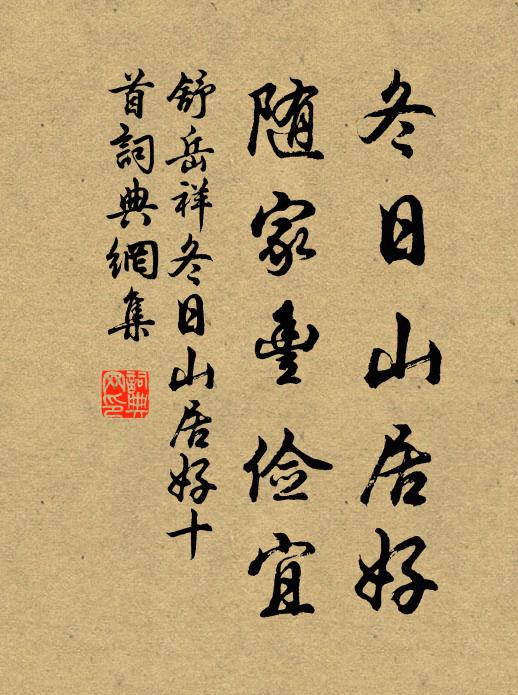 冬日山居好
随家豊儉宜
舒岳祥冬日山居好十
首詞典網集
詞典
网印